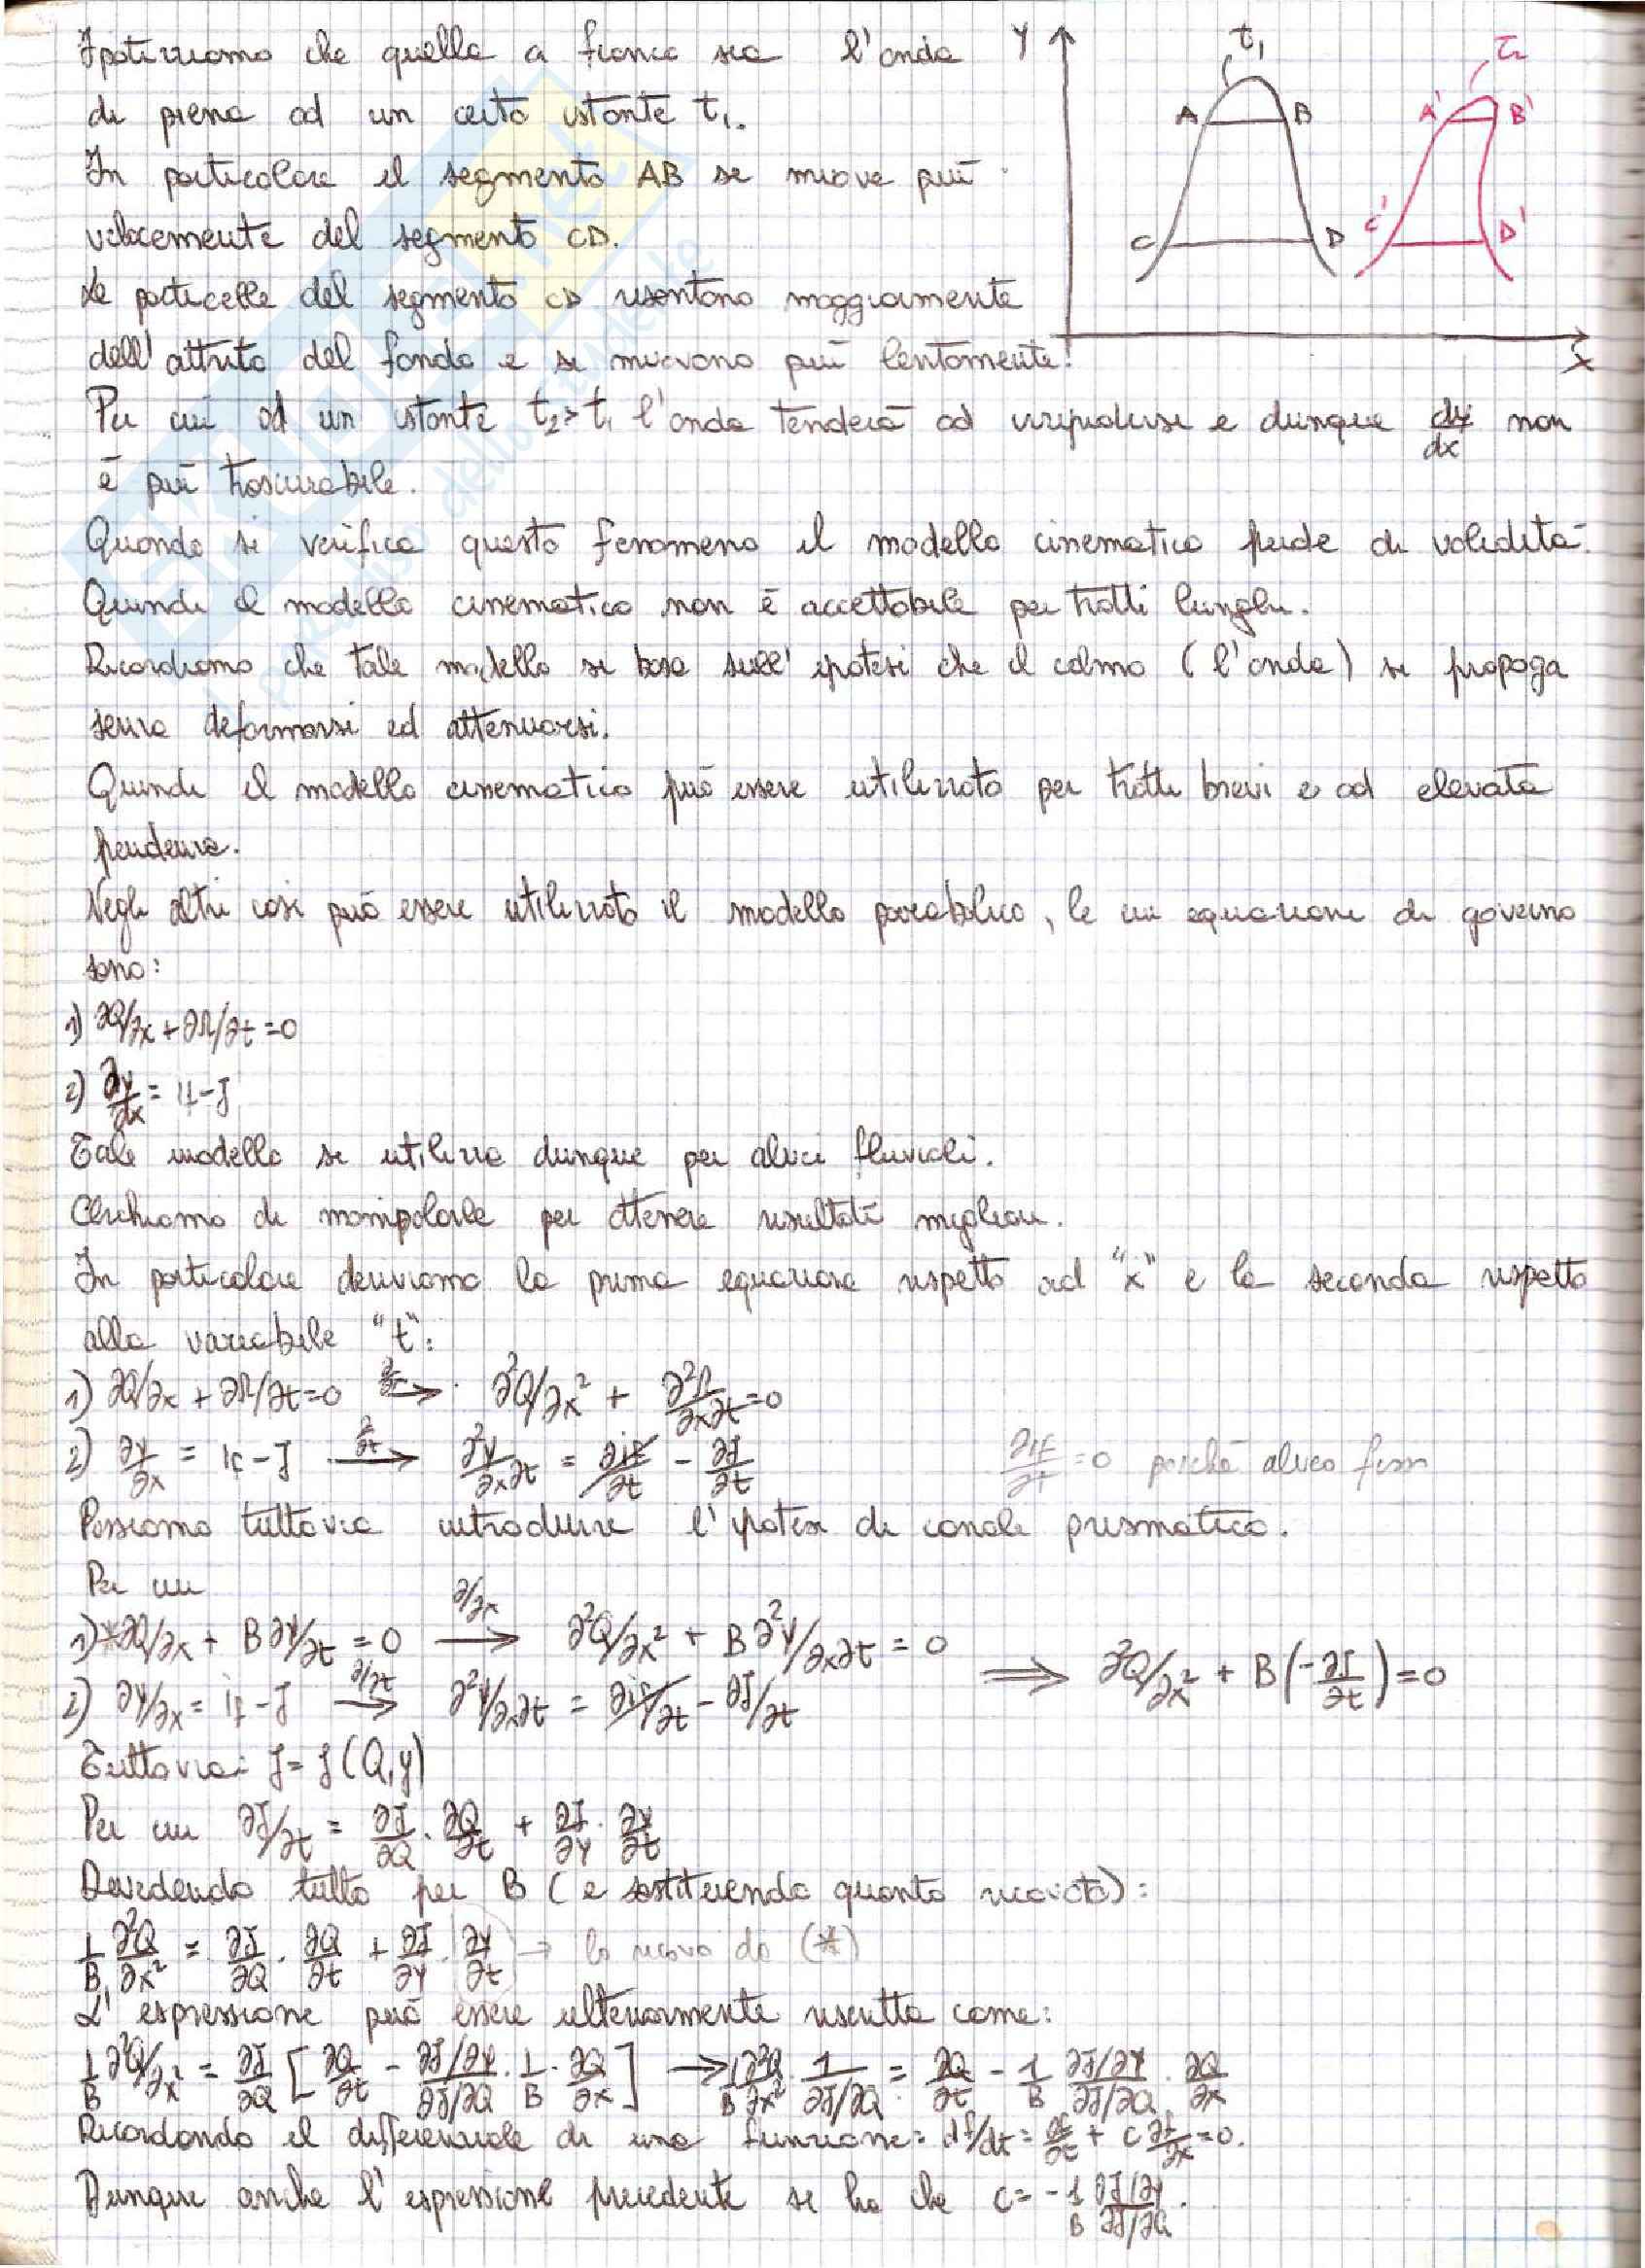 Ipotizziamo che quella a fianco sia l'onda
di piena ad un certo istante t₁.
In particolare il segmento AB si muove più
velocemente del segmento CD.
Le particelle del segmento CD risentono maggiormente
dell'attrito del fondo e si muovono più lentamente.
Y
t₁
A B
C D
t₂
A' B'
C' D'
X
Per cui ad un istante t₂>t₁ l'onda tenderà ad irripidirsi e dunque dy/dx non
è più trascurabile.
Quando si verifica questo fenomeno il modello cinematico perde di validità.
Quindi il modello cinematico non è accettabile per tratti lunghi.
Ricordiamo che tale modello si basa sull'ipotesi che il colmo (l'onda) si propaga
senza deformarsi ed attenuarsi.
Quindi il modello cinematico può essere utilizzato per tratti brevi e ad elevata
pendenza.
Negli altri casi può essere utilizzato il modello parabolico, le cui equazioni di governo
sono:
1) ∂Q/∂x + ∂Ω/∂t = 0
2) ∂y/∂x = if - J
Tale modello si utilizza dunque per alvei fluviali.
Cerchiamo di manipolarle per ottenere risultati migliori.
In particolare deriviamo la prima equazione rispetto ad "x" e la seconda rispetto
alla variabile "t":
1) ∂Q/∂x + ∂Ω/∂t = 0 ∂/∂x → ∂²Q/∂x² + ∂²Ω/∂x∂t = 0
2) ∂y/∂x = if - J ∂/∂t → ∂²y/∂x∂t = ∂if/∂t - ∂J/∂t ∂if/∂t = 0 perché alveo fisso
Possiamo tuttavia introdurre l'ipotesi di canale prismatico.
Per cui
1)* ∂Q/∂x + B ∂y/∂t = 0 ∂/∂x → ∂²Q/∂x² + B ∂²y/∂x∂t = 0
2) ∂y/∂x = if - J ∂/∂t → ∂²y/∂x∂t = ∂if/∂t - ∂J/∂t
⟹ ∂²Q/∂x² + B(-∂J/∂t) = 0
Tuttavia: J = J(Q,y)
Per cui ∂J/∂t = ∂J/∂Q · ∂Q/∂t + ∂J/∂y · ∂y/∂t
Dividendo tutto per B (e sostituendo quanto ricavato):
1/B ∂²Q/∂x² = ∂J/∂Q · ∂Q/∂t + ∂J/∂y · ∂y/∂t → lo ricavo da (*)
L'espressione può essere ulteriormente riscritta come:
1/B ∂²Q/∂x² = ∂J/∂Q [∂Q/∂t - ∂J/∂y / ∂J/∂Q · 1/B · ∂Q/∂x] → 1/B ∂²Q/∂x² · 1/∂J/∂Q = ∂Q/∂t - 1/B ∂J/∂y / ∂J/∂Q · ∂Q/∂x
Ricordando il differenziale di una funzione: df/dt = ∂f/∂t + c ∂f/∂x = 0.
Dunque anche l'espressione precedente si ha che c = -1/B ∂J/∂y / ∂J/∂Q.